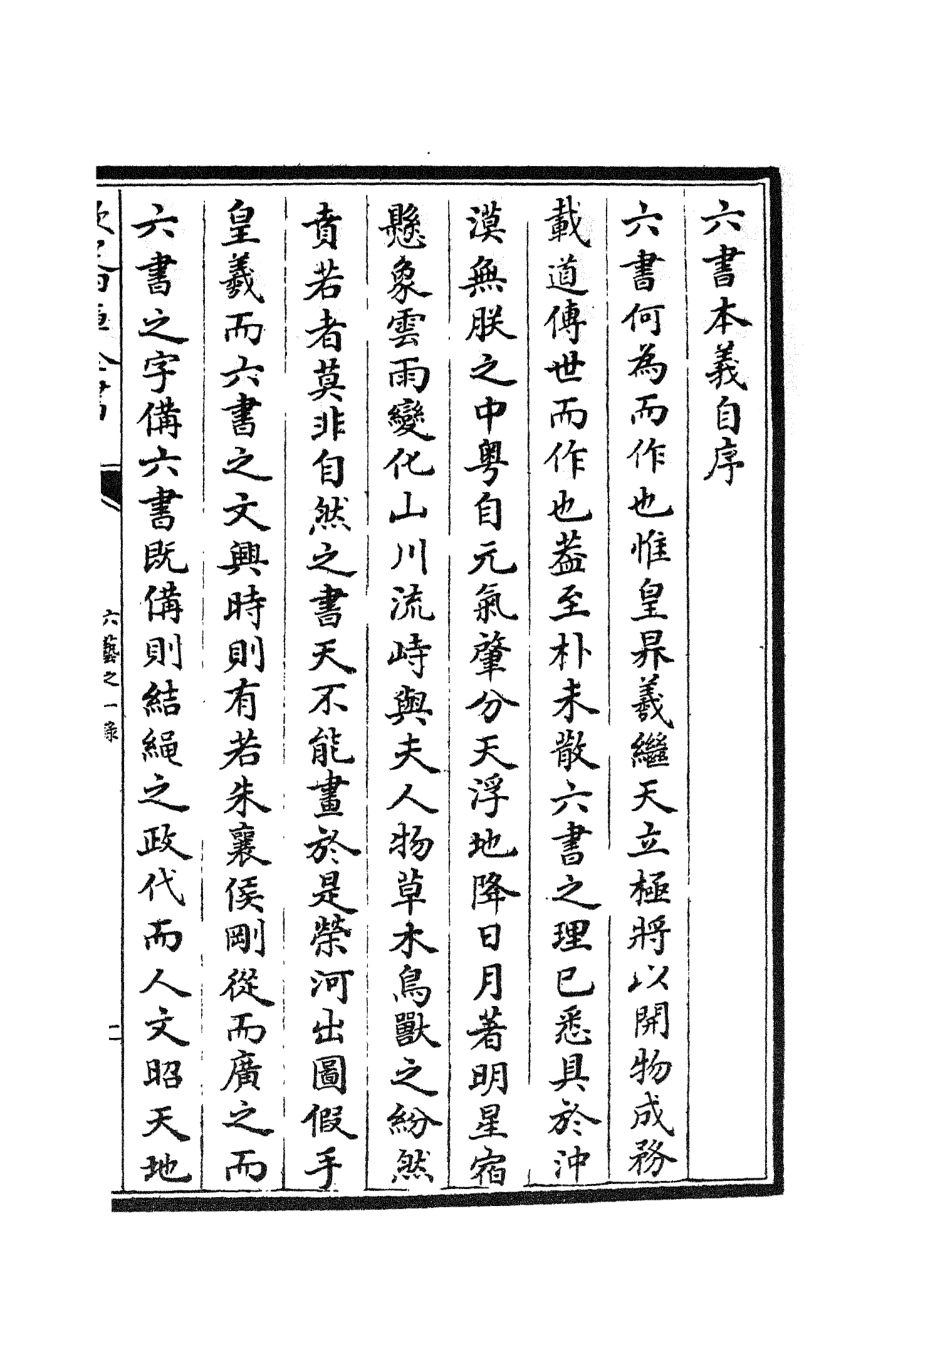 六書本義自序
六書何為而作也惟皇昦羲繼天立極將以開物成務
載道傳世而作也葢至朴未散六書之理已悉具於沖
漠無朕之中粤自元氣肇分天浮地降日月著明星宿
懸象雲雨變化山川流峙與夫人物草木鳥獸之紛然
賁若者莫非自然之書天不能畫於是榮河出圖假手
皇羲而六書之文興時則有若朱襄侯剛從而廣之而
六書之字備六書既備則結繩之政代而人文昭天地
六藝之一錄
二